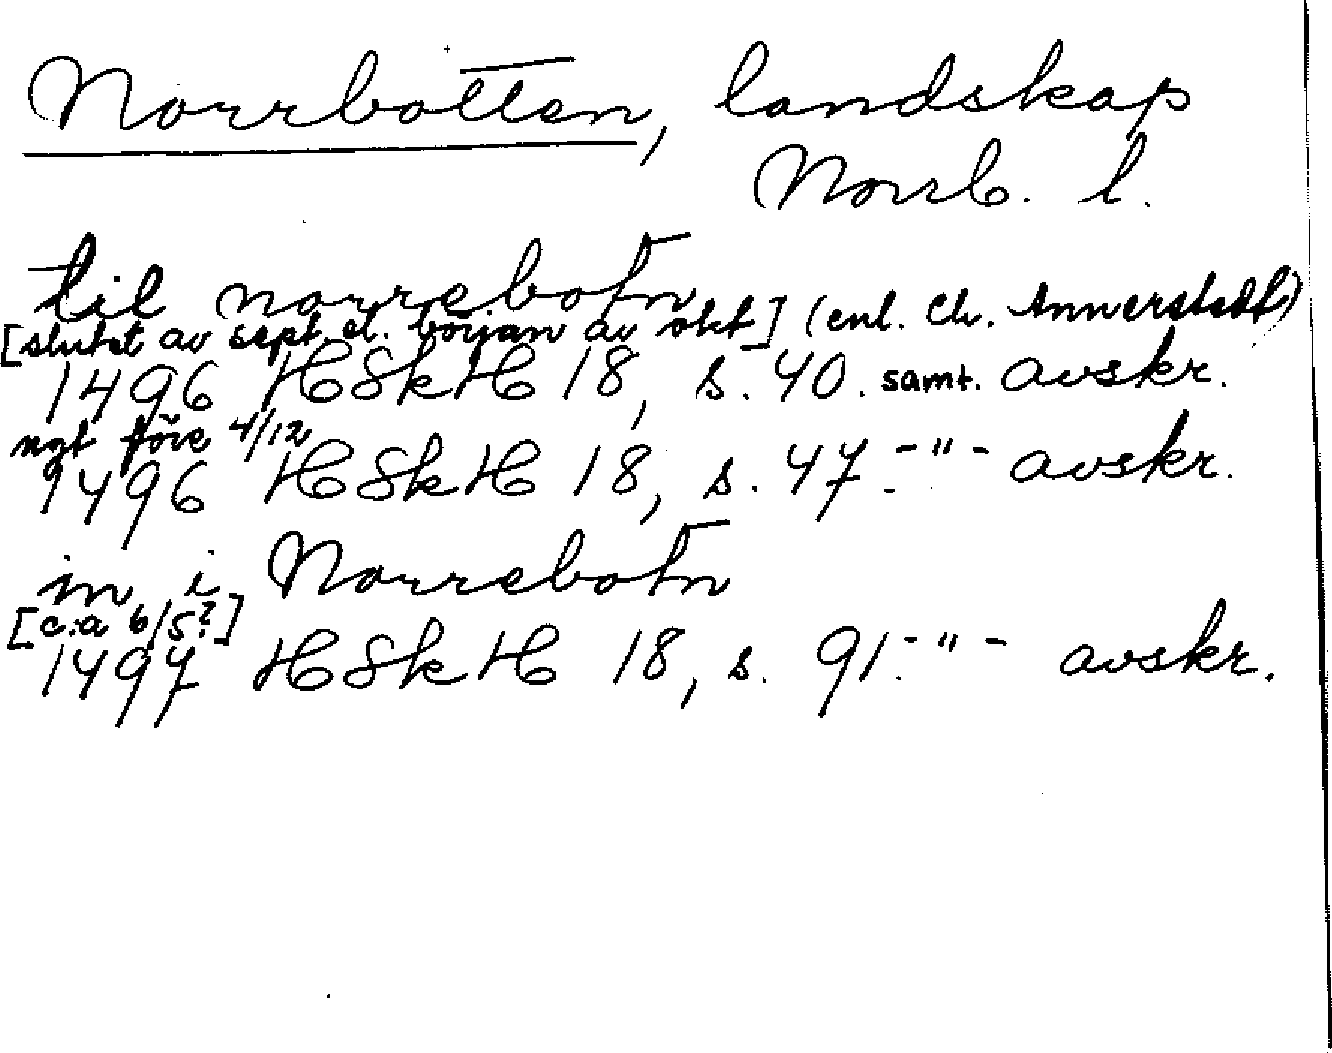 Norrbotten, landskap
Norrb. l.
til norrebotn
[slutet av sept. el. början av okt] (enl. Cl. Annerstedt)
1496 HSkH 18, s. 40. samt. avskr.
ngt före 4/12
1496 HSkH 18, s. 47. -"- avskr.
in i Norrebotn
[c:a 6/5?]
1497 HSkH 18, s. 91. -"- avskr.